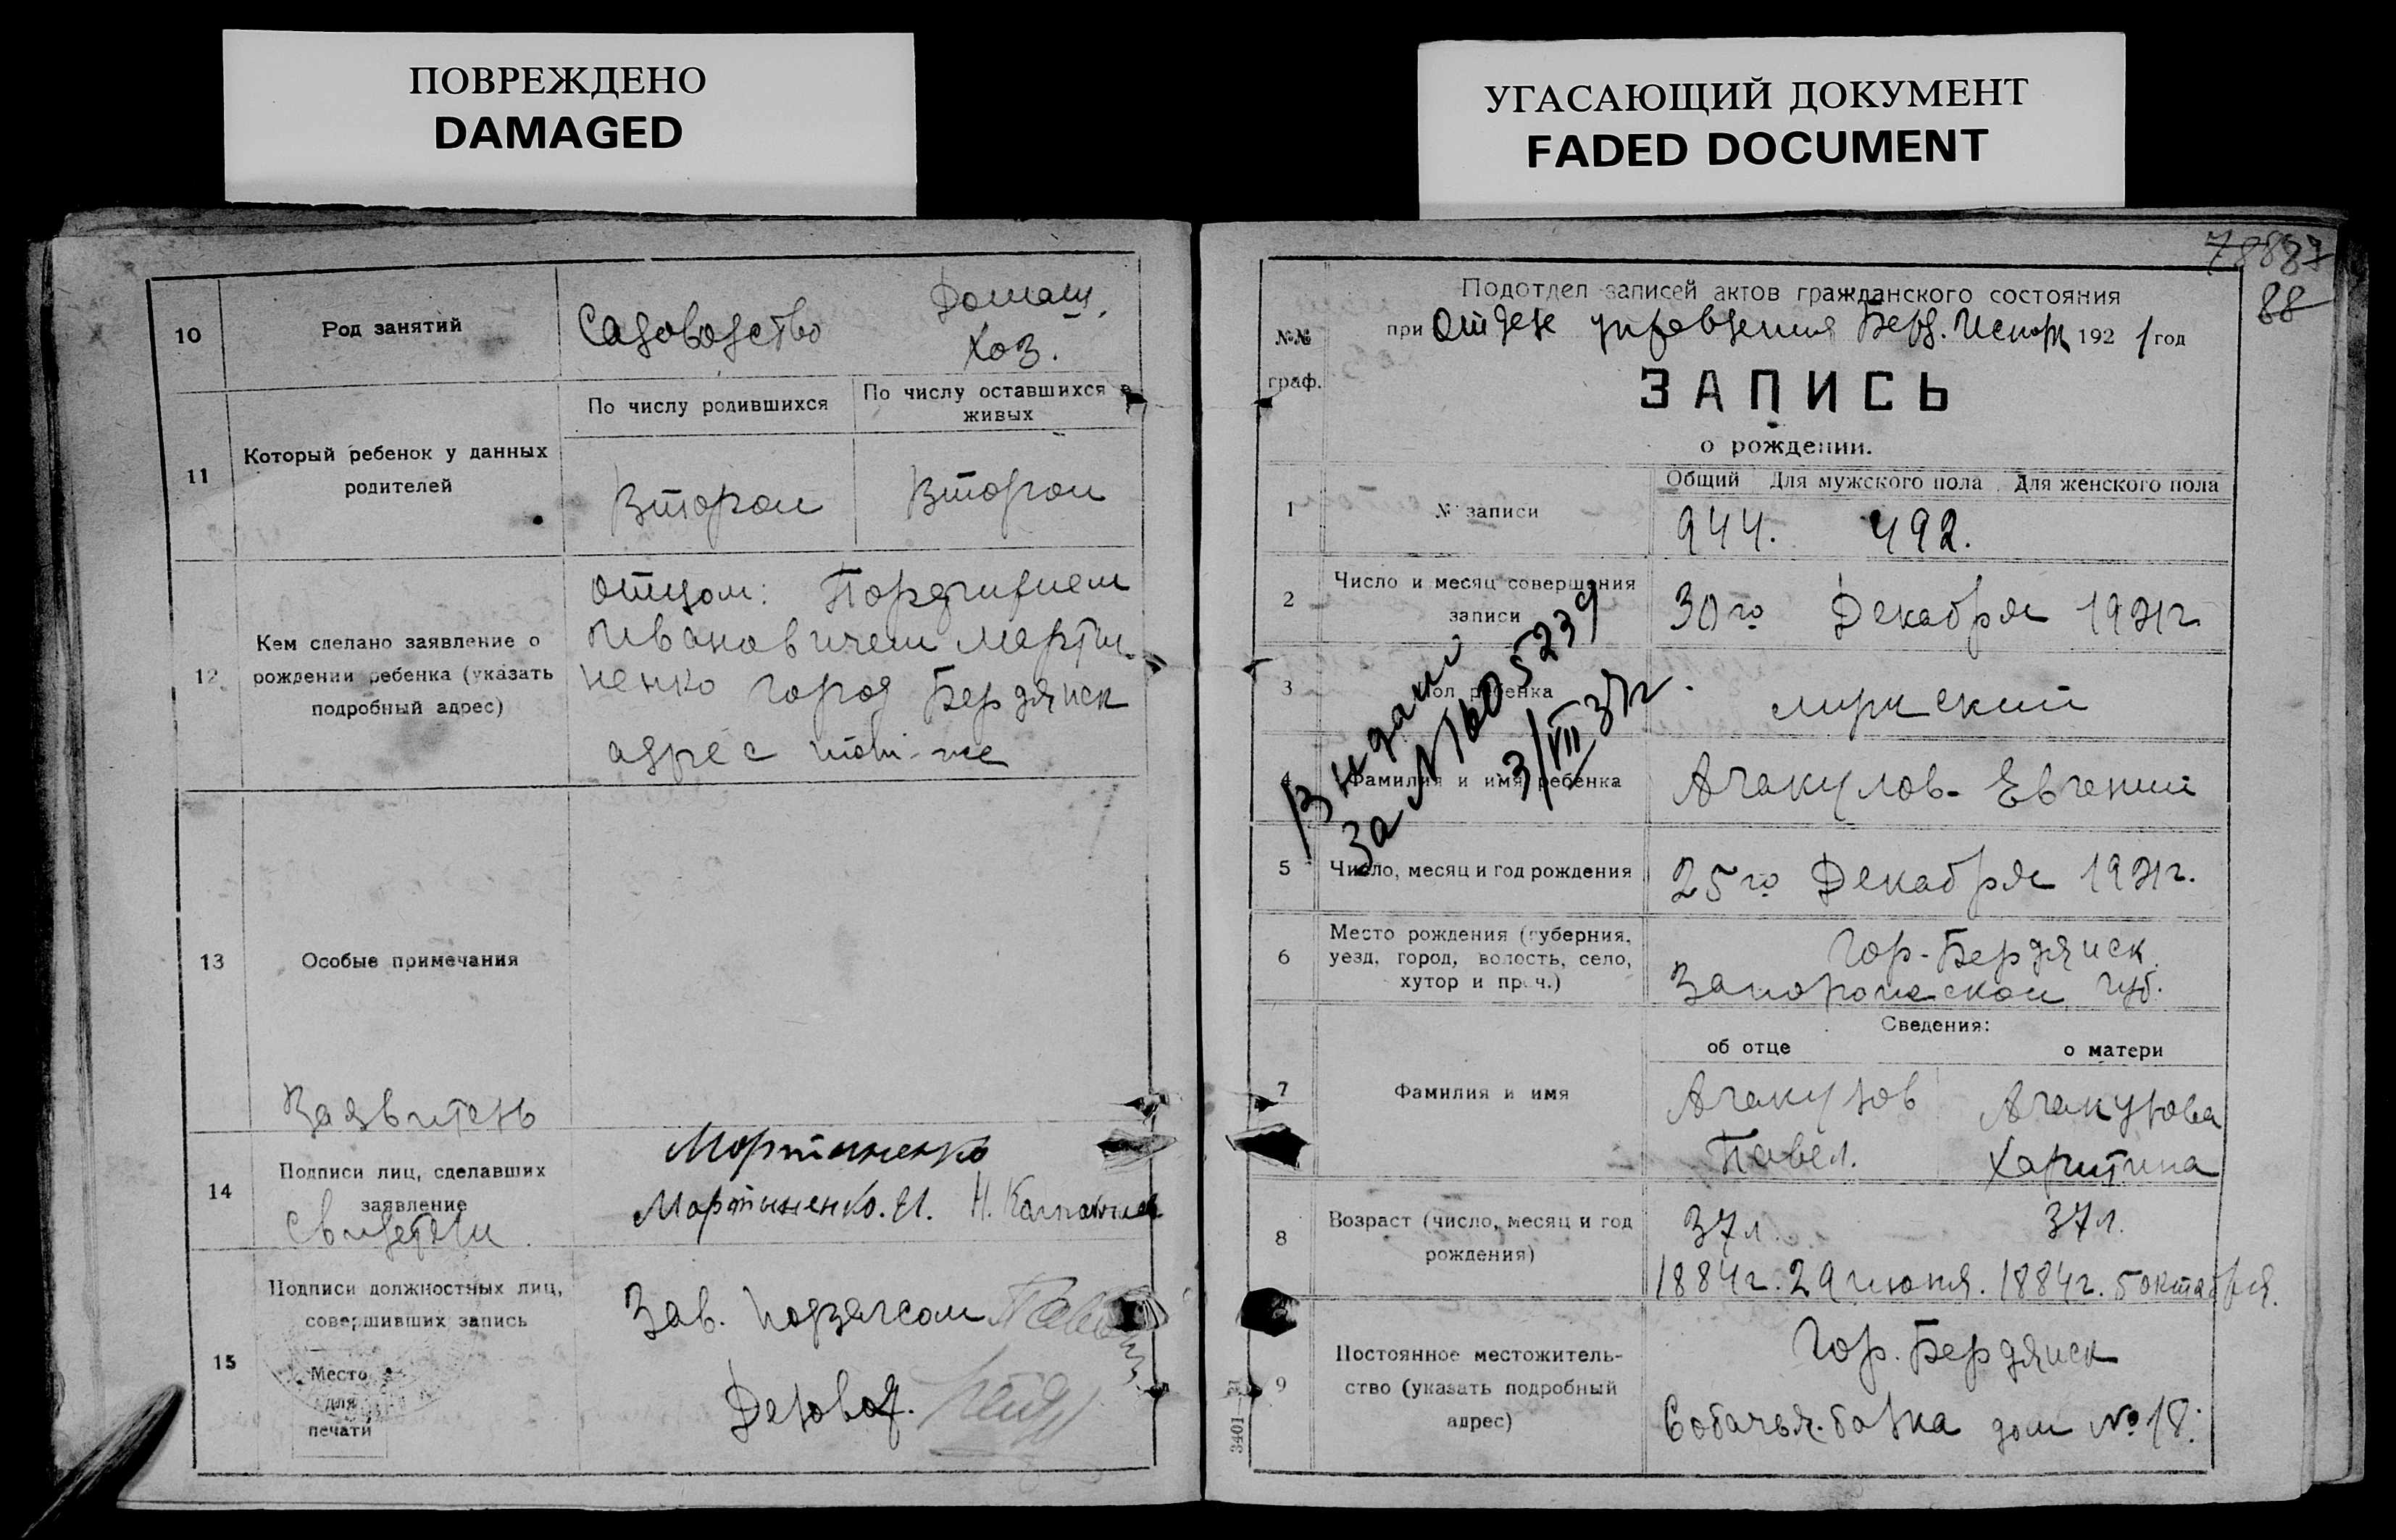 ПОВРЕЖДЕНО
DAMAGED
УГАСАЮЩИЙ ДОКУМЕНТ
FADED DOCUMENT
10
Род занятий
Садоводство
Домаш.
Хоз.
11
Который ребенок у данных
родителей
По числу родившихся
По числу оставшихся в
живых
Второй
Второй
12
Кем сделано заявление о
рождении ребенка (указать
подробный адрес)
Отцом:
Ивановичем Марти-
ненко город Бердянск
адрес тот-же
13
Особые примечания
Заявитель
14
Подписи лиц, сделавших
заявление
Свидетели
Мортиненко
Мортиненко. И. Н.
15
Подписи должностных лиц,
совершивших запись
Место
для
печати
Зав. подзагсом
Деловод.
78887
88
№№
граф.
Подотдел записей актов гражданского состояния
при Отделе управления Берд. Испол 1921 год
ЗАПИСЬ
о рождении.
1
№ записи
Общий Для мужского пола Для женского пола
944. 492.
2
Число и месяц совершения
записи
30го Декабря 1921г.
3
Пол ребенка
мужской
4
Фамилия и имя ребенка
Агакулов- Евгений
Выдано
за № 605239
3/VII 37г.
5
Число, месяц и год рождения
25го Декабря 1921г.
6
Место рождения (губерния,
уезд, город, волость, село,
хутор и проч.)
Гор-Бердянск
Запорожской губ.
Сведения:
об отце
о матери
7
Фамилия и имя
Агакулов
Павел.
Агакулова
Харитина
8
Возраст (число, месяц и год
рождения)
37л. 37л.
1884г. 29 июня. 1884г. 5 октября.
9
Постоянное местожитель-
ство (указать подробный
адрес)
Гор. Бердянск
Собачья-балка дом № 18.
3401